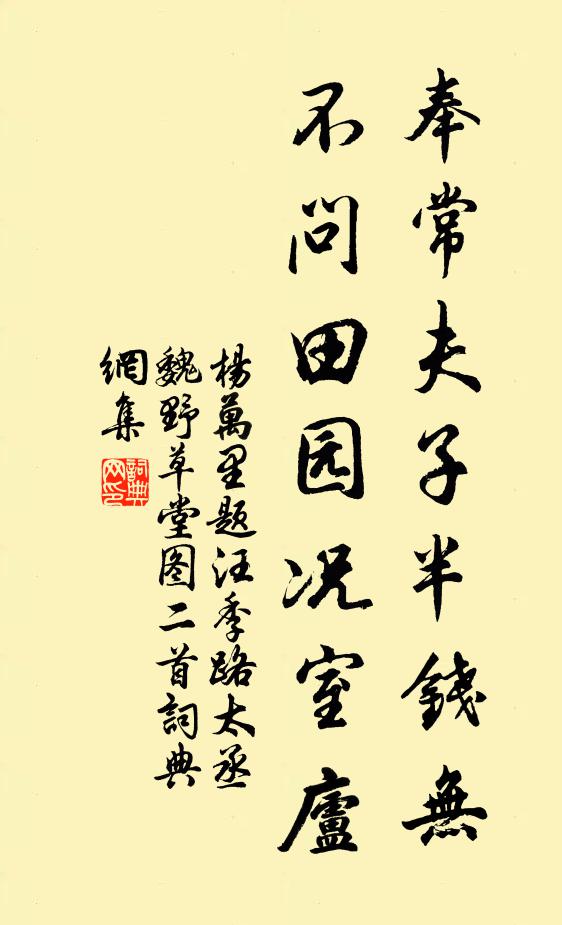 奉常夫子半錢無
不问田园况室廬
楊萬里題汪季路太丞
魏野草堂图二首詞典
網集
詞典網印